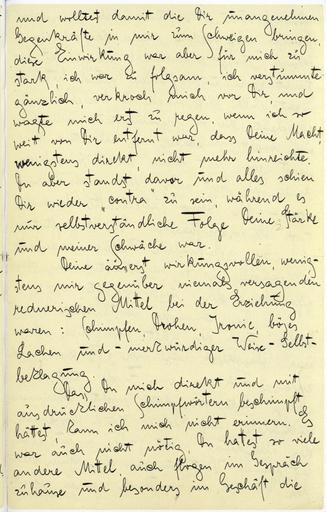 und wolltest damit die Dir unangenehmen
Gegenkräfte in mir zum Schweigen bringen,
diese Einwirkung war aber für mich zu
stark, ich war zu folgsam, ich verstummte
gänzlich, verkroch mich vor Dir und
wagte mich erst zu regen, wenn ich so
weit von Dir entfernt war, dass Deine Macht
wenigstens direkt nicht mehr hinreichte.
Du aber standst davor und alles schien
Dir wieder „contra" zu sein, während es
nur selbstverständliche Folge Deiner Stärke
und meiner Schwäche war.
Deine äusserst wirkungsvollen, wenig-
stens mir gegenüber niemals versagenden
rednerischen Mittel bei der Erziehung
waren: Schimpfen, Drohen, Ironie, böses
Lachen und - merkwürdiger Weise - Selbst-
beklagung.
Dass Du mich direkt und mit
ausdrücklichen Schimpfwörtern beschimpft
hättest kann ich mich nicht erinnern. Es
war auch nicht nötig, Du hattest so viele
andere Mittel, auch flogen im Gespräch
zuhause und besonders im Geschäft die